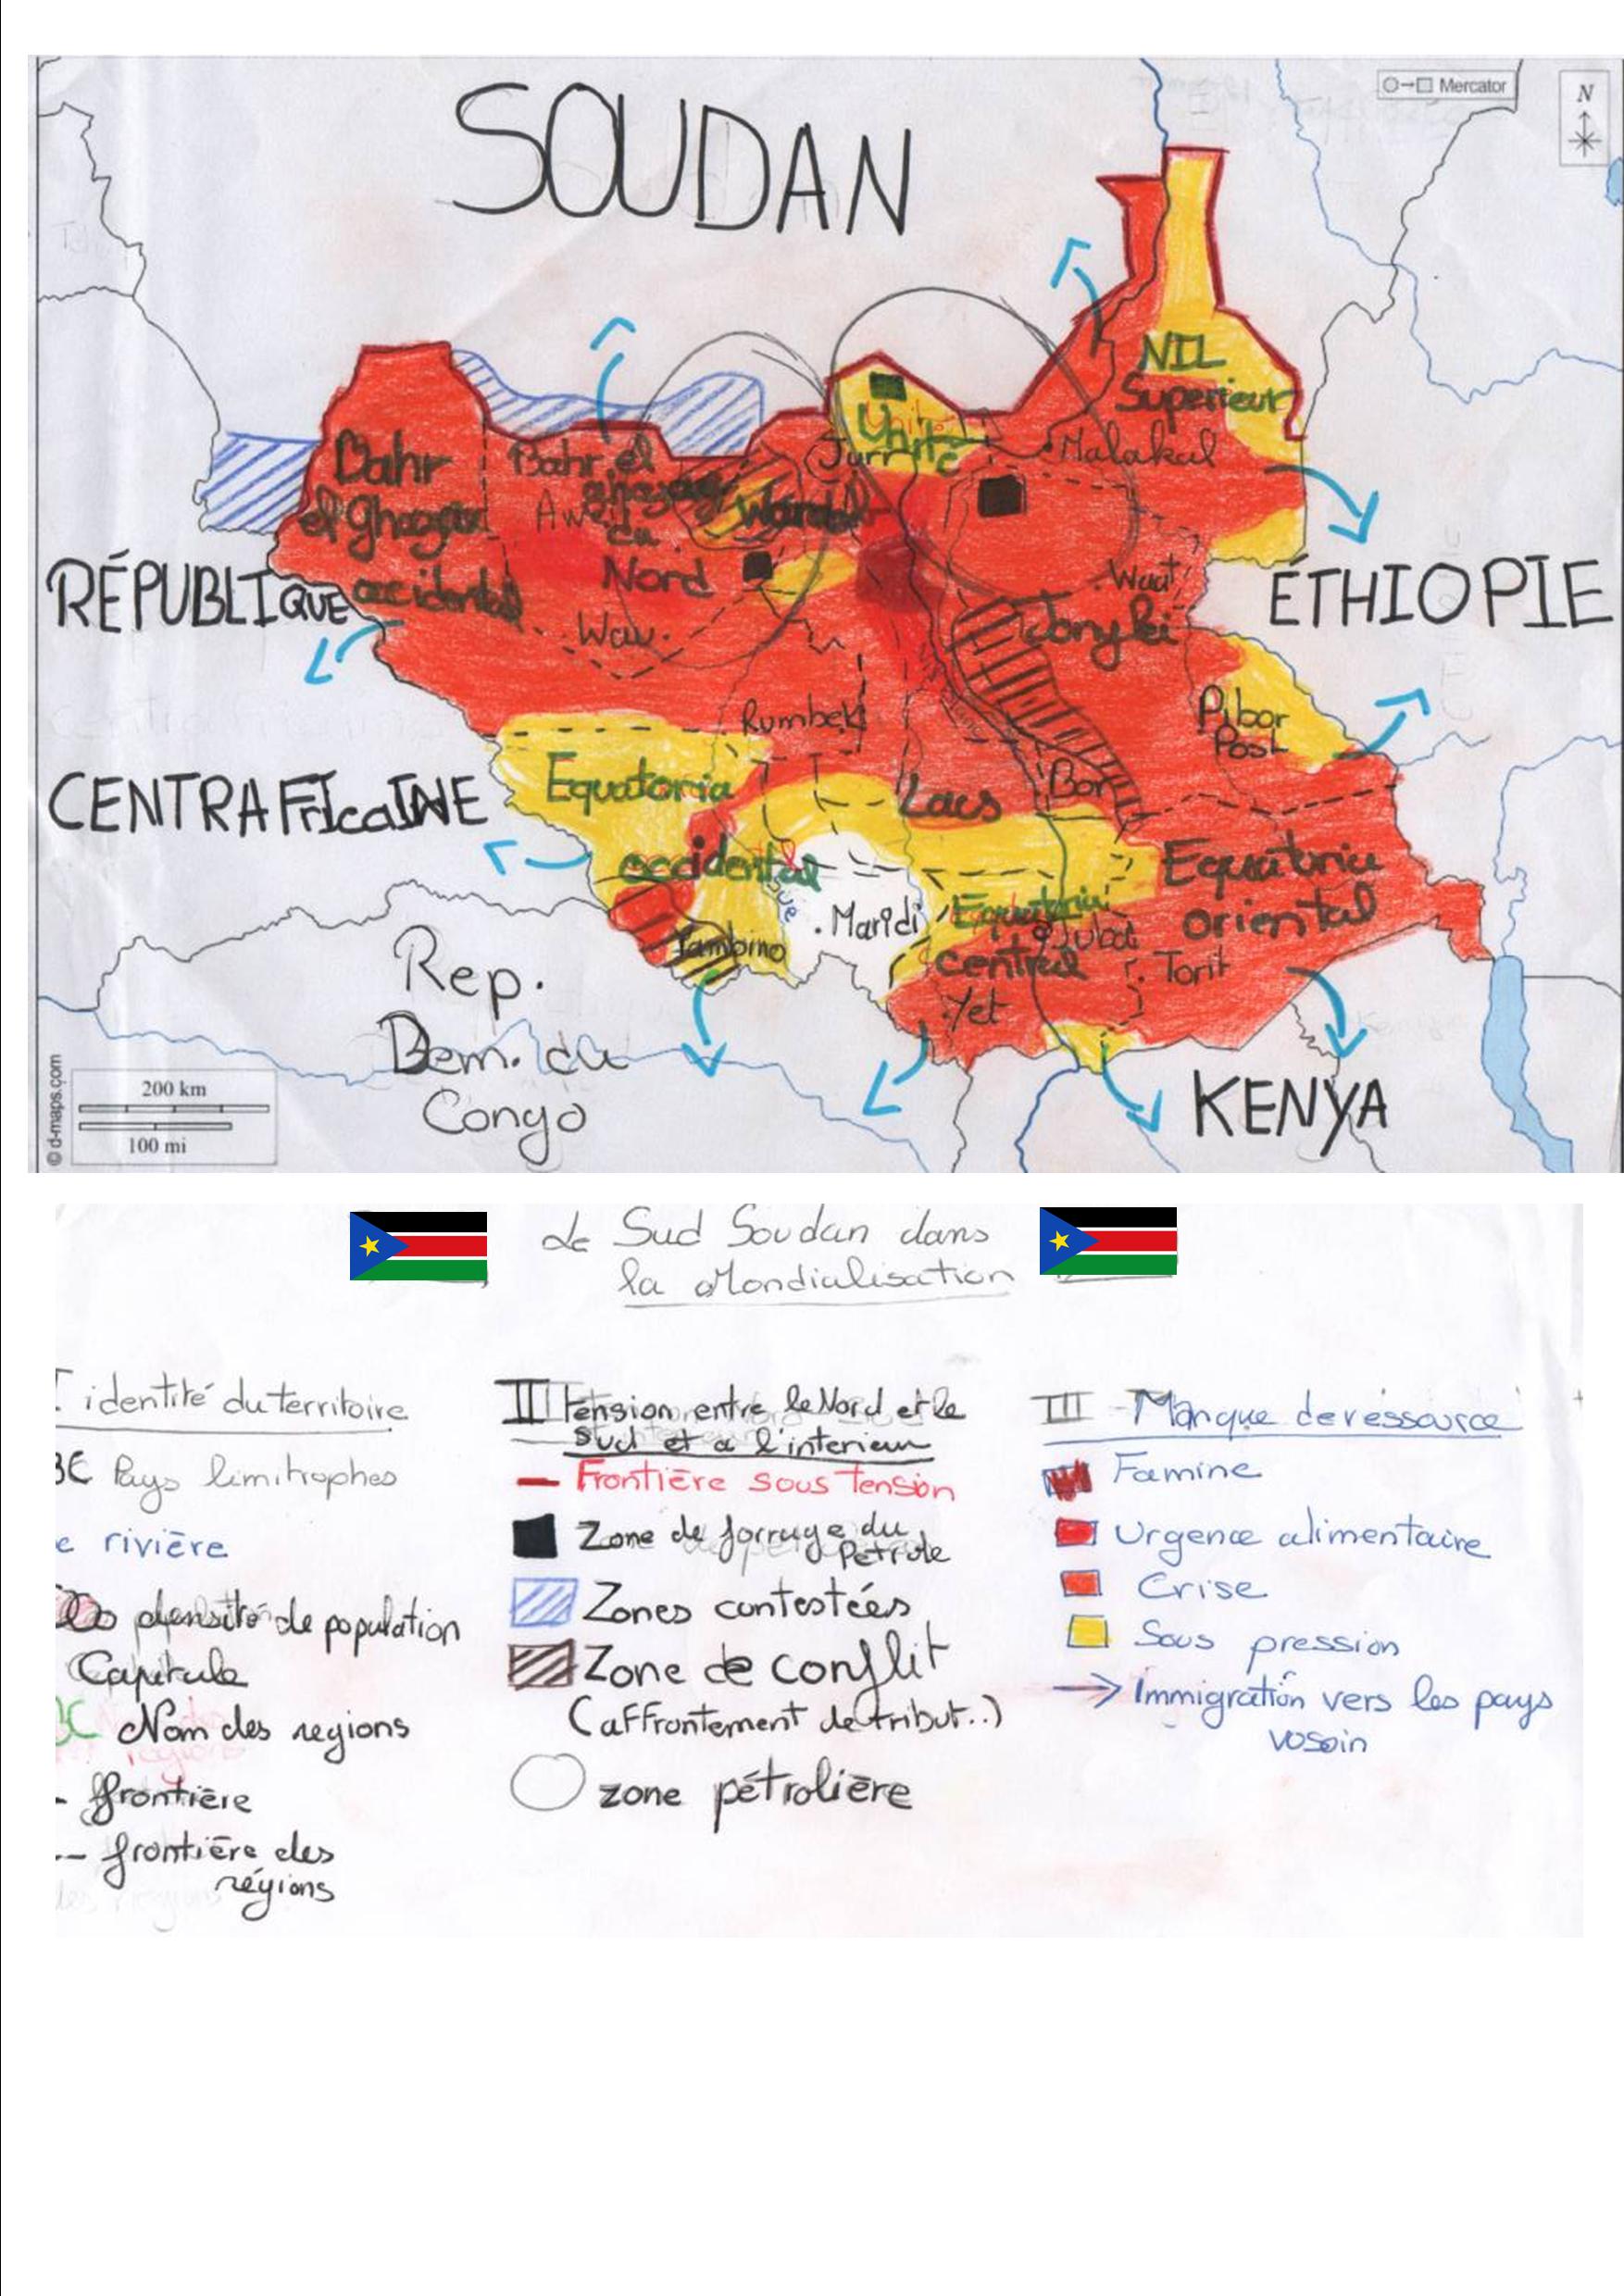 SOUDAN
Mercator
N
NIL
Superieur
Malakal
Unité
Dahr
el Ghazal
occidental
Bahr el
ghazal
du
Nord
Warab
Waw
Waat
Jonglei
RÉPUBLIQUE
CENTRAFricaINE
ÉTHIOPIE
Pibor
Post
Rumbek
Bor
Lacs
Equatoria
occidental
Maridi
Yambino
Equatoria
central
Juba
Yet
Torit
Equatoria
oriental
Rep.
Dem. du
Congo
KENYA
200 km
100 mi
© d-maps.com
Le Sud Soudan dans
la Mondialisation
I identité du territoire
BC Pays limitrophes
e rivière
densité de population
Capitale
BC Nom des regions
- frontière
-- frontière des
régions
II tension entre le Nord et le
sud et a l'interieur
Frontière sous tension
Zone de forrage du
Petrole
Zones contestées
Zone de conflit
(affrontement de tribut..)
zone pétrolière
III - Manque de ressource
Famine
Urgence alimentaire
Crise
Sous pression
Immigration vers les pays
vosoin